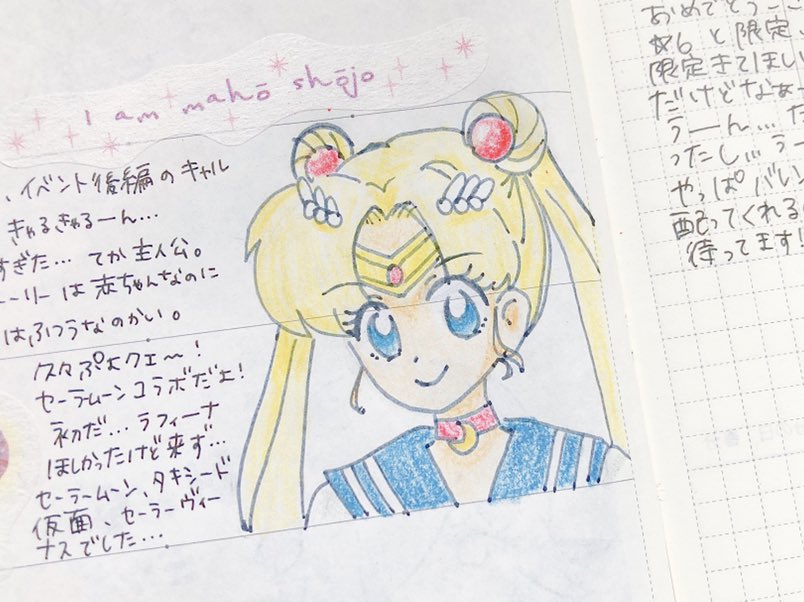 I am mahō shōjo
、イベント後編のキャル
きゃるきゃるーん…
すぎた… てか主人公。
ーリーは赤ちゃんなのに
はふつうなのかい。
久々ぷよクエ〜!
セーラームーンコラボだよ!
初だ… ラフィーナ
ほしかったけど来ず…
セーラームーン、タキシード
仮面、セーラーヴィー
ナスでした…
おめでとうご
☆6と限定、
限定きてほしい
だけどなぁー
うーん… た
ったし… うー
やっぱバレ
配ってくれる
待ってます!